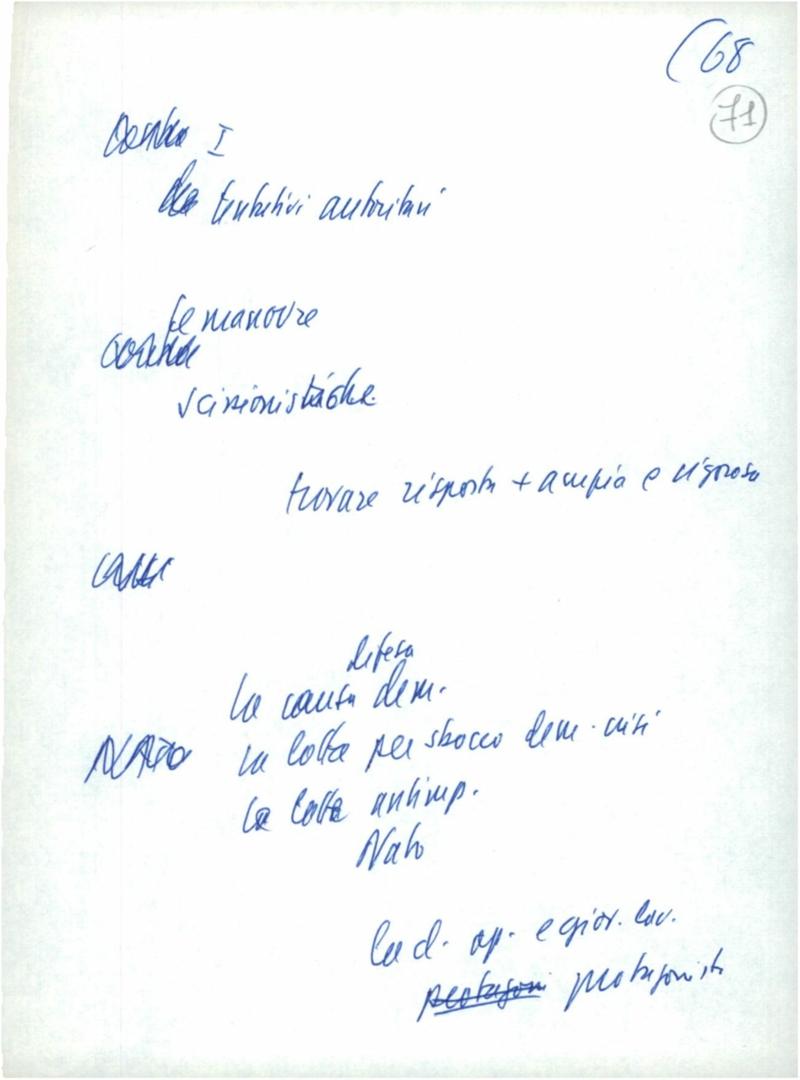 (68
71
Contro I
tentativi autoritari
le manovre
contro
scissionistiche
trovare risposta + ampia e rigorosa
difesa
la causa dem.
NATO la lotta per sbocco dem. crisi
la lotta antimp.
Nato
la cl. op. e giov. lav.
protagoni protagonisti